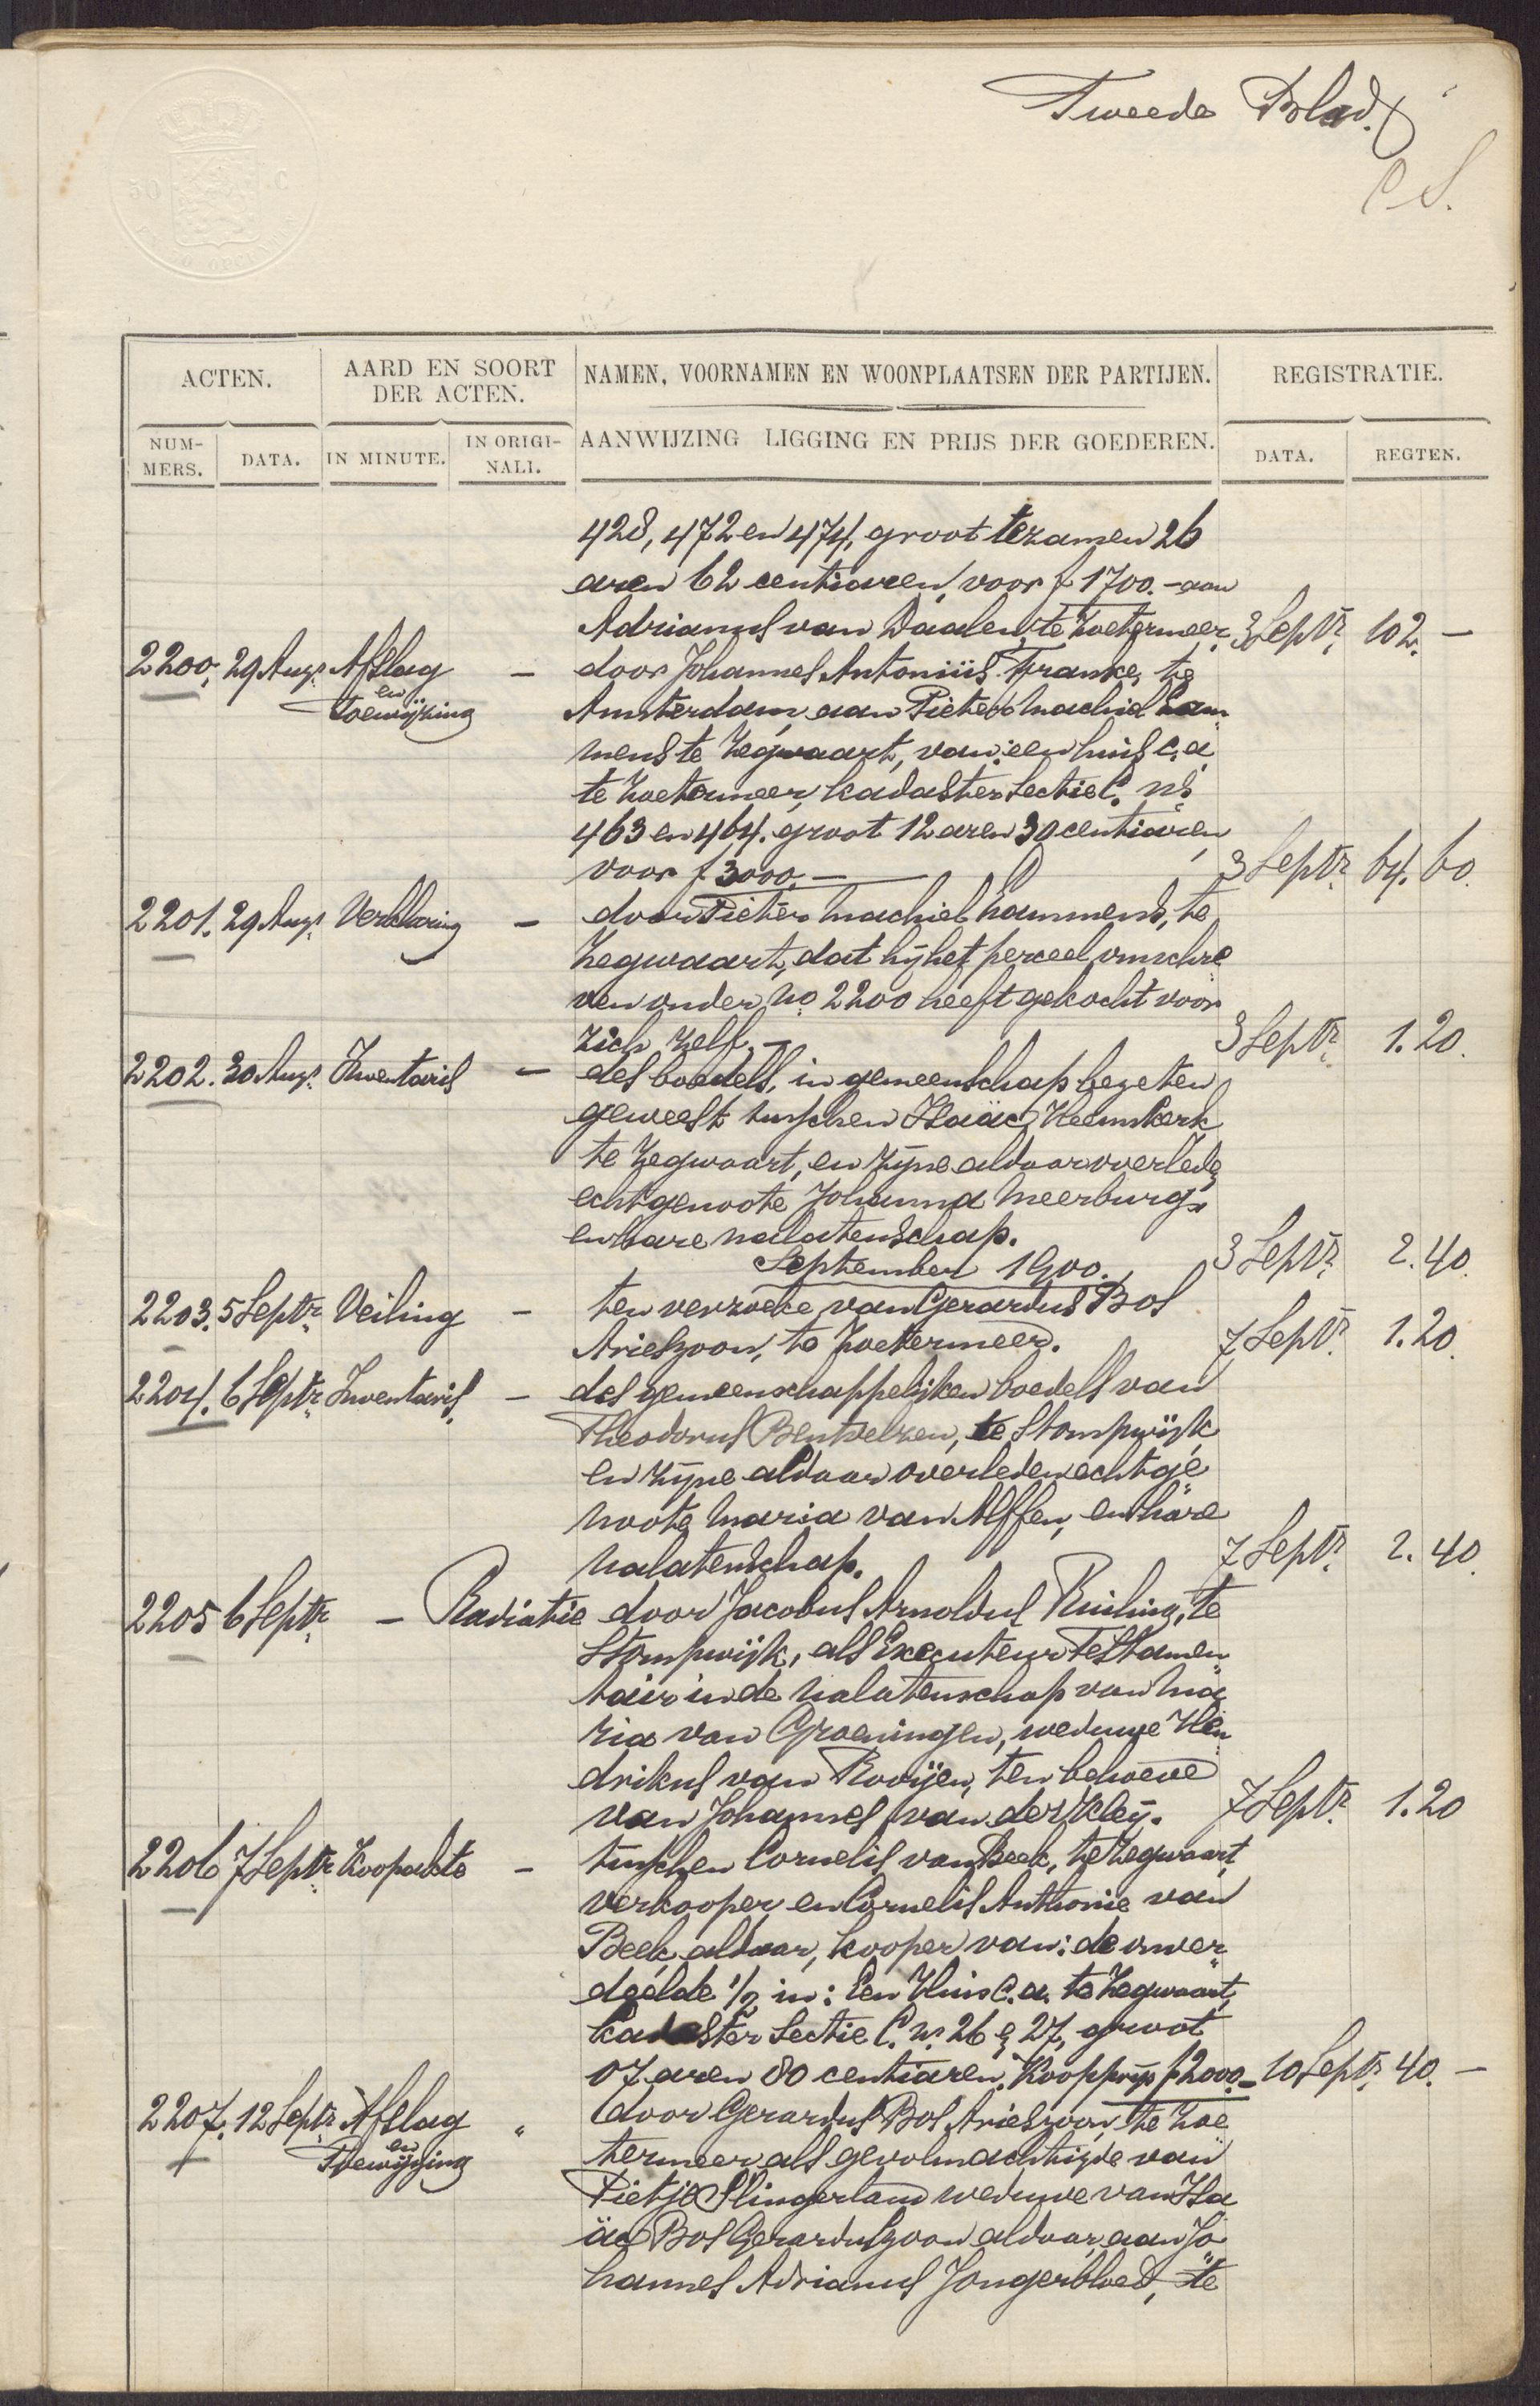 Tweede Blad.
C S.
50 C
ACTEN.
AARD EN SOORT
DER ACTEN.
NAMEN, VOORNAMEN EN WOONPLAATSEN DER PARTIJEN.
REGISTRATIE.
NUM-
MERS.
DATA.
IN MINUTE.
IN ORIGI-
NALI.
AANWIJZING LIGGING EN PRIJS DER GOEDEREN.
DATA.
REGTEN.
428, 472 en 474, groot tezamen 26
aren 62 centiaren, voor f 1700.- aan
Adrianus van Daalen, te Zoetermeer. 3 Septr. 102. -
2200. 29 Augs. Afslag - door Johannes Antonius Franke, te
en
Toewijzing Amsterdam, aan Pieter Machiel Ham
mens te Zegwaart, van: een huis c.a.
te Zoetermeer, kadaster Sectie C. ns.
463 en 464. groot 12 aren 30 centiaren
voor f 3000.- 3 Septr. 64. 60.
2201. 29 Augs. Verklaring - door Pieter Machiel Hammens, te
Zegwaart, dat hij het perceel omschre
ven onder No 2200 heeft gekocht voor
zich zelf. - 3 Septr. 1. 20.
2202. 30 Augs. Inventaris - des boedels, in gemeenschap bezeten
geweest tusschen Isaäc Heemskerk
te Zegwaart, en zijne aldaar overlede
echtgenoote Johanna Meerburg,
en hare nalatenschap. 3 Septr. 2. 40.
September 1900.
2203. 5 Septr. Veiling - ten verzoeke van Gerardus Bos
Arieszoon, te Zoetermeer. 7 Septr. 1. 20.
2204. 6 Septr. Inventaris. - des gemeenschappelijken boedels van
Theodorus Bentvelzen, te Stompwijk
en zijne aldaar overleden echtge
noote Maria van Alffen, en hare
nalatenschap. 7 Septr. 2. 40.
2205 6 Septr. - Radiatie door Jacobus Arnoldus Ruiling, te
Stompwijk, als Executeur Testamen
tair in de nalatenschap van Ma
ria van Groeningen, weduwe Hen
drikus van Rooijen, ten behoeve
van Johannes van der Kleij. 7 Septr. 1. 20
2206 7 Septr. Koopakte - tusschen Cornelis van Beek, te Zegwaart,
verkooper en Cornelis Anthonie van
Beek aldaar, kooper van: de onver
deelde 1/2 in: Een Huis c.a. te Zegwaart,
kadaster Sectie C. ns. 26 & 27, groot
07 aren 80 centiaren. Koopprijs f 2000.- 10 Septr. 40. -
2207. 12 Septr. Afslag " door Gerardus Bos Arieszoon, te Zoe
en
Toewijzing termeer als gevolmachtigde van
Pietje Slingerland weduwe van Isa
äc Bos Gerarduszoon aldaar, aan Jo
hannes Adrianus Jongerbloed, te